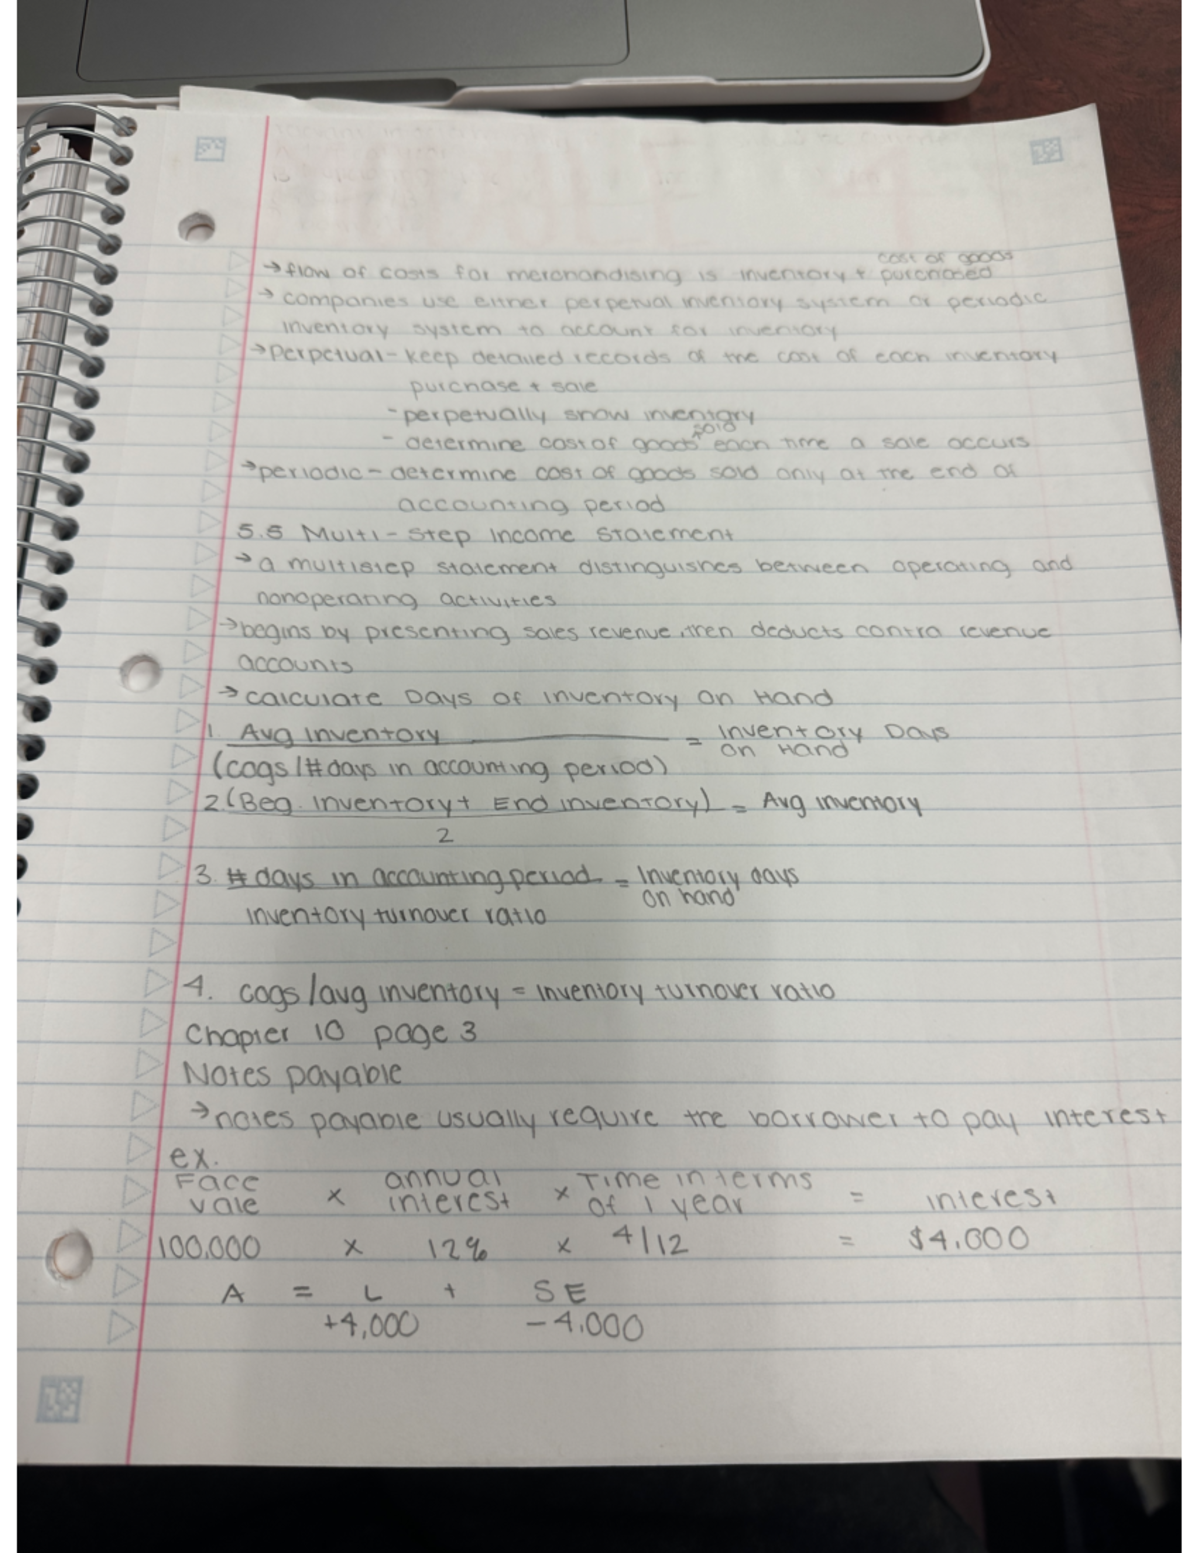 cost of goods
→ flow of costs for merchandising is inventory + purchased
→ companies use either perpetual inventory system or periodic
inventory system to account for inventory
→ Perpetual - keep detailed records of the cost of each inventory
purchase + sale
- perpetually show inventory
sold
- determine cost of goods ^ each time a sale occurs
→ periodic - determine cost of goods sold only at the end of
accounting period
5.5 Multi-Step Income Statement
→ a multistep statement distinguishes between operating and
nonoperating activities
→ begins by presenting sales revenue, then deducts contra revenue
accounts
→ calculate Days of Inventory on Hand
1. Avg Inventory = Inventory Days
on Hand
(cogs / # days in accounting period)
2 (Beg. Inventory + End inventory) = Avg inventory
2
3. # days in accounting period = Inventory days
on hand
inventory turnover ratio
4. cogs / avg inventory = inventory turnover ratio
Chapter 10 page 3
Notes payable
→ notes payable usually require the borrower to pay interest
ex.
Face vale × annual interest × Time in terms of 1 year = interest
100,000 × 12% × 4/12 = $4,000
A = L + SE
+4,000 -4,000